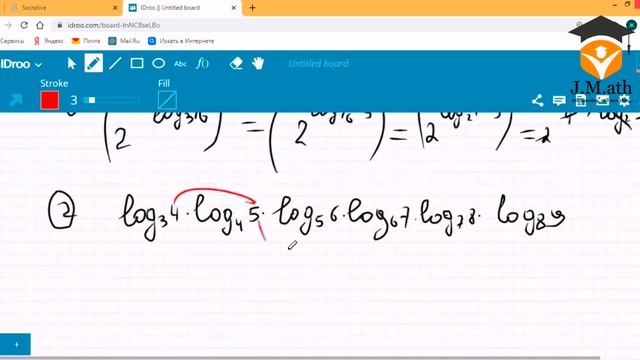 Socrative
IDroo || Untitled board
idroo.com/board-tnNCBseLBo
Сервисы
Новости
Почта
Mail.Ru
Искать в Интернете
IDroo
Abc
f()
Untitled board
Stroke
Fill
3
J.M.ath
= = =
7 log₃4 · log₄5 · log₅6 · log₆7 · log₇8 · log₈9